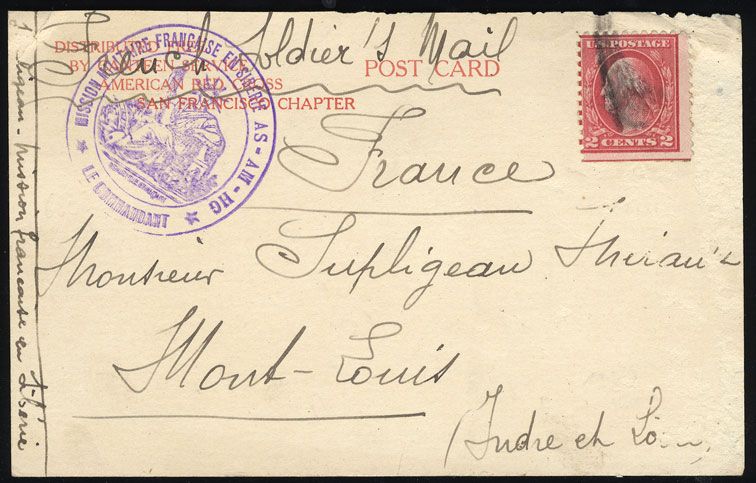 French Soldier's Mail
DISTRIBUTED FREE
BY CANTEEN SERVICE
AMERICAN RED CROSS
SAN FRANCISCO CHAPTER
POST CARD
U.S. POSTAGE
2 CENTS 2
MISSION MILITAIRE FRANÇAISE EN SIBERIE AS-AM-HG
LE COMMANDANT
France
Monsieur Supligeau
Mont-Louis
(Indre et
mission française en Sibérie